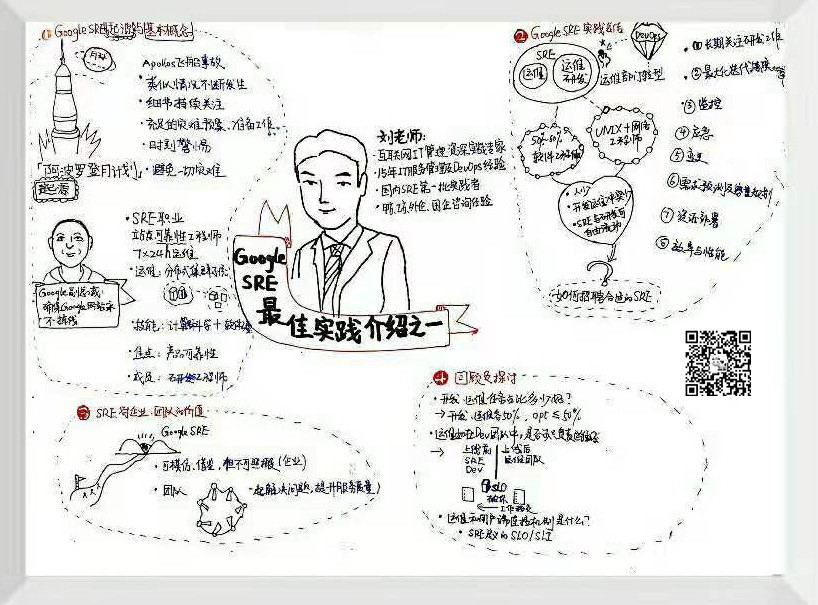 ① Google SRE起源与基本概念
Apollo8飞船事故
· 类似情况不断发生
· 细节持续关注
· 充足的灾难预案、准备工作
· 时刻警惕
· 避免一切灾难
「阿波罗登月计划」
起源
· SRE职业
站点可靠性工程师
7×24h运维
· 运维：分布式集群
Google副总裁
确保Google网站永
不掉线
· 技能：计算机科学+
· 焦点：产品可靠性
· 成员：工程师
刘老师：
· 互联网IT管理资深实践专家
· 15年IT服务管理及DevOps经验
· 国内SRE第一批实践者
· 国企咨询经验
Google
SRE
最佳实践介绍之一
② Google SRE 实践总结
SRE
运维
运维
研发
DevOps
运维部门转型
50%-60%
软件工程师
UNIX+网络
工程师
· 人少
· SRE与研发
自由流动
如何招聘合适的SRE
①长期关注研发工作
②最大化迭代速度
③监控
④应急
⑤变更
⑥需求预测及容量规划
⑦
⑧效率与性能
③ SRE对企业、团队的价值
Google SRE
· 可模仿、借鉴，但不可照搬（企业）
· 团队
一起解决问题，提升服务质量
④ 回顾及探讨
· 开发、运维任务占比多少？
→ 开发、运维各50%，opt≤50%
→ 上线前
SRE
Dev
上线后
运维团队
SLO
· 运维和用户端连接机制是什么？
· SRE定义的SLO/SLI